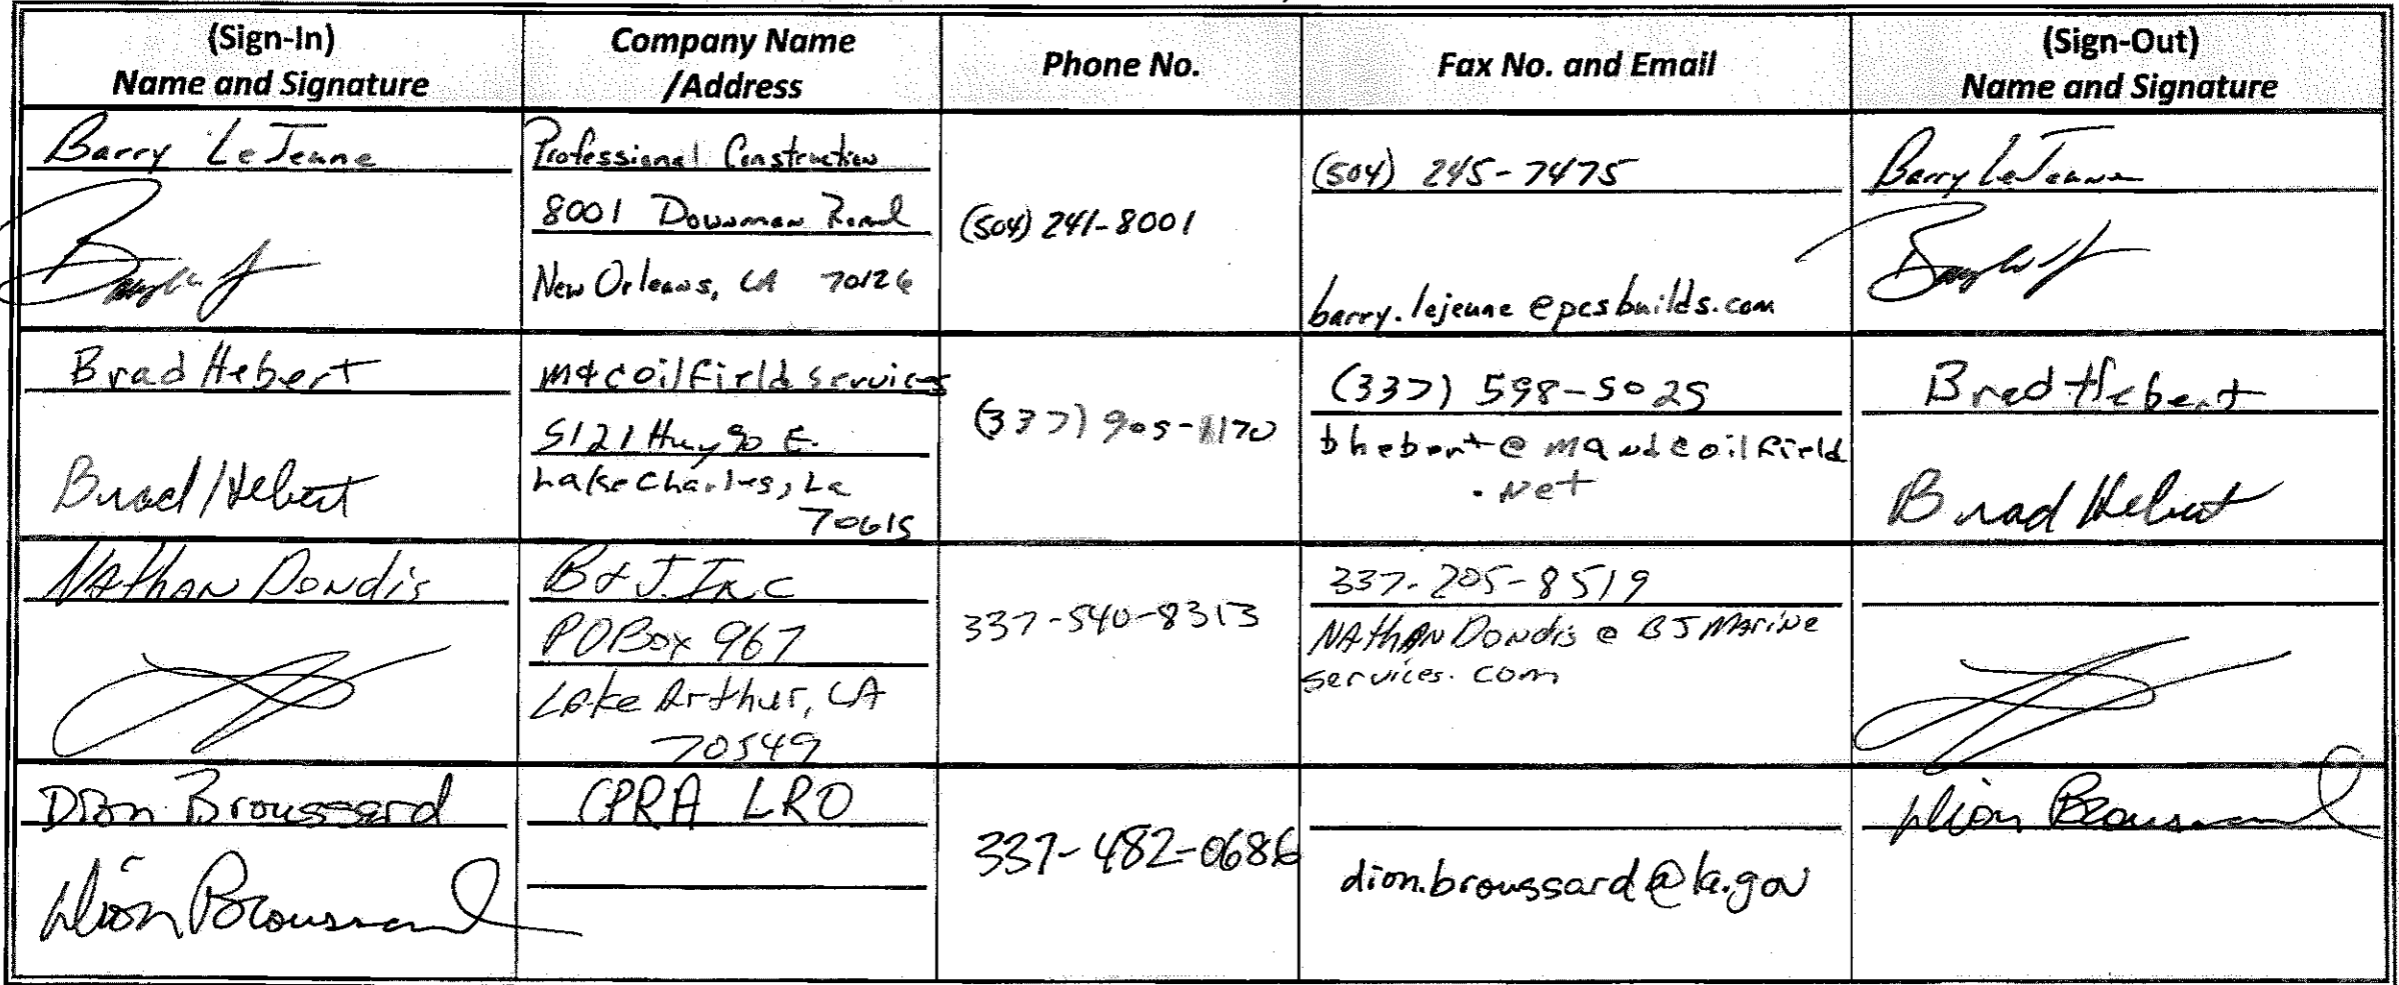 (Sign-In)
Name and Signature
Company Name
/Address
Phone No.
Fax No. and Email
(Sign-Out)
Name and Signature
Barry LeJeune
Professional Construction
8001 Downman Road
New Orleans, LA 70126
(504) 241-8001
(504) 245-7475
barry.lejeune@pcsbuilds.com
Barry LeJeune
Brad Hebert
Brad Hebert
M&C oilfield services
5121 Hwy 90 E.
Lake Charles, La
70615
(337) 905-1170
(337) 598-5025
bhebert@mandcoilfield
.net
Brad Hebert
Brad Hebert
NAthAN DoNdis
B&J. INC
PO Box 967
Lake Arthur, LA
70549
337-540-8313
337-205-8519
NAthAN DoNdis @ BJ MAriNe
services.com
Dion Broussard
Dion Broussard
CPRA LRO
337-482-0686
dion.broussard@la.gov
Dion Broussard